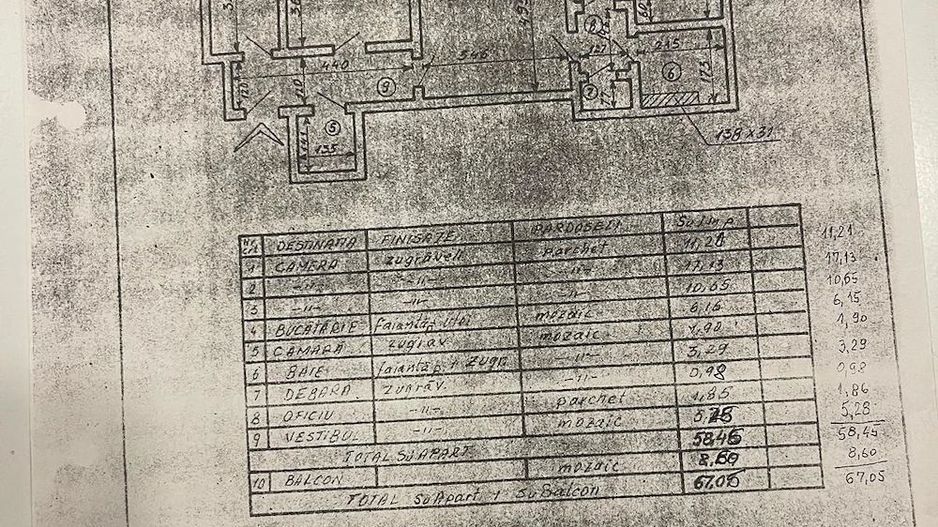 440
546
121
215
173
120
110
9
7
6
5
135
138 x 31
Nr. crt. DESTINATIA FINISAJE PARDOSELI Su.l.m.p.
1 CAMERA zugraveli parchet 11,21 11,21
2 -"- -"- -"- 17,13 17,13
3 -"- -"- -"- 10,65 10,65
4 BUCATARIE faianta p mozaic 6,15 6,15
5 CAMARA zugrav. mozaic 1,90 1,90
6 BAIE faianta p + zugr. -"- 3,29 3,29
7 DEBARA zugrav. -"- 0,98 0,98
8 OFICIU -"- parchet 1,85 1,86
9 VESTIBUL -"- mozaic 5,28 5,28
TOTAL Su APART 58,45 58,45
10 BALCON mozaic 8,60 8,60
TOTAL Su Apart + Su Balcon 67,05 67,05